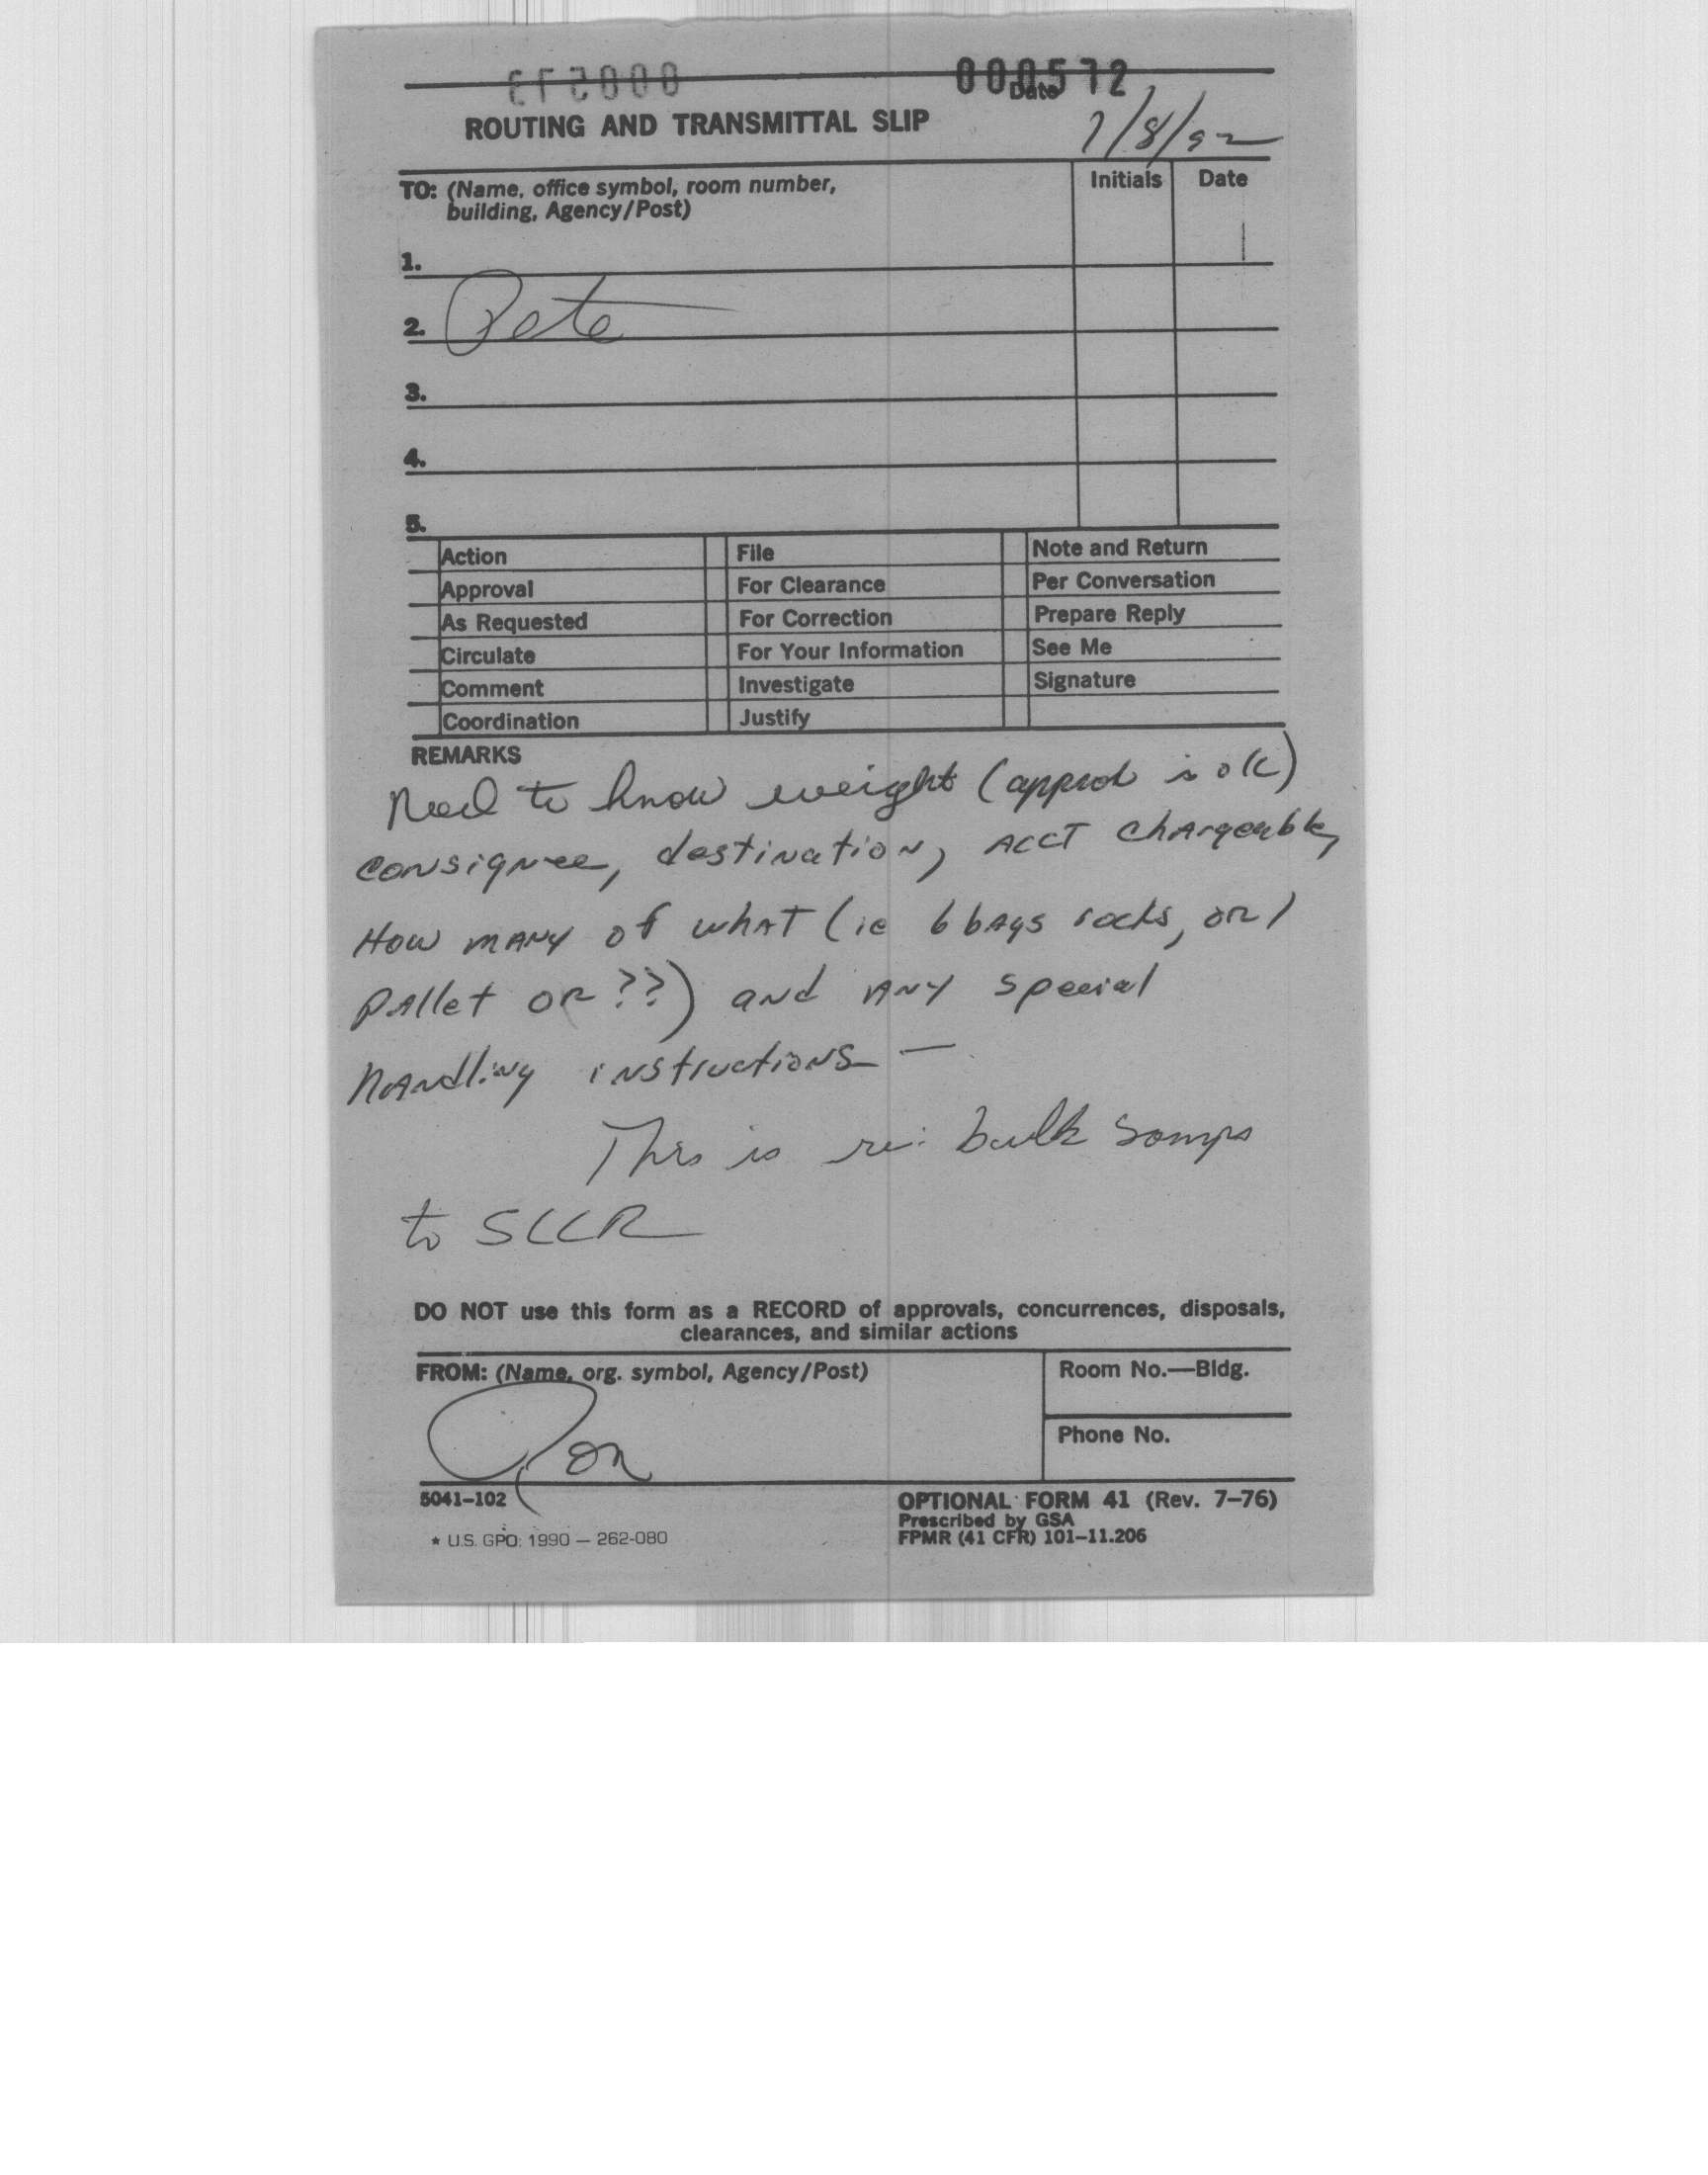 000572
Date
ROUTING AND TRANSMITTAL SLIP
7/8/92
TO: (Name, office symbol, room number, building, Agency/Post)
Initials Date
1.
2. Pete
3.
4.
5.
Action File Note and Return
Approval For Clearance Per Conversation
As Requested For Correction Prepare Reply
Circulate For Your Information See Me
Comment Investigate Signature
Coordination Justify
REMARKS
Need to know weight (approx is ok)
consignee, destination, ACCT Chargeable,
How many of what (ie 6 bags rocks, or 1
pallet or ??) and any special
handling instructions —
This is re: bulk samps
to SLCR
DO NOT use this form as a RECORD of approvals, concurrences, disposals,
clearances, and similar actions
FROM: (Name, org. symbol, Agency/Post)
Room No.—Bldg.
Phone No.
5041-102
OPTIONAL FORM 41 (Rev. 7-76)
Prescribed by GSA
FPMR (41 CFR) 101-11.206
★ U.S. GPO: 1990 — 262-080